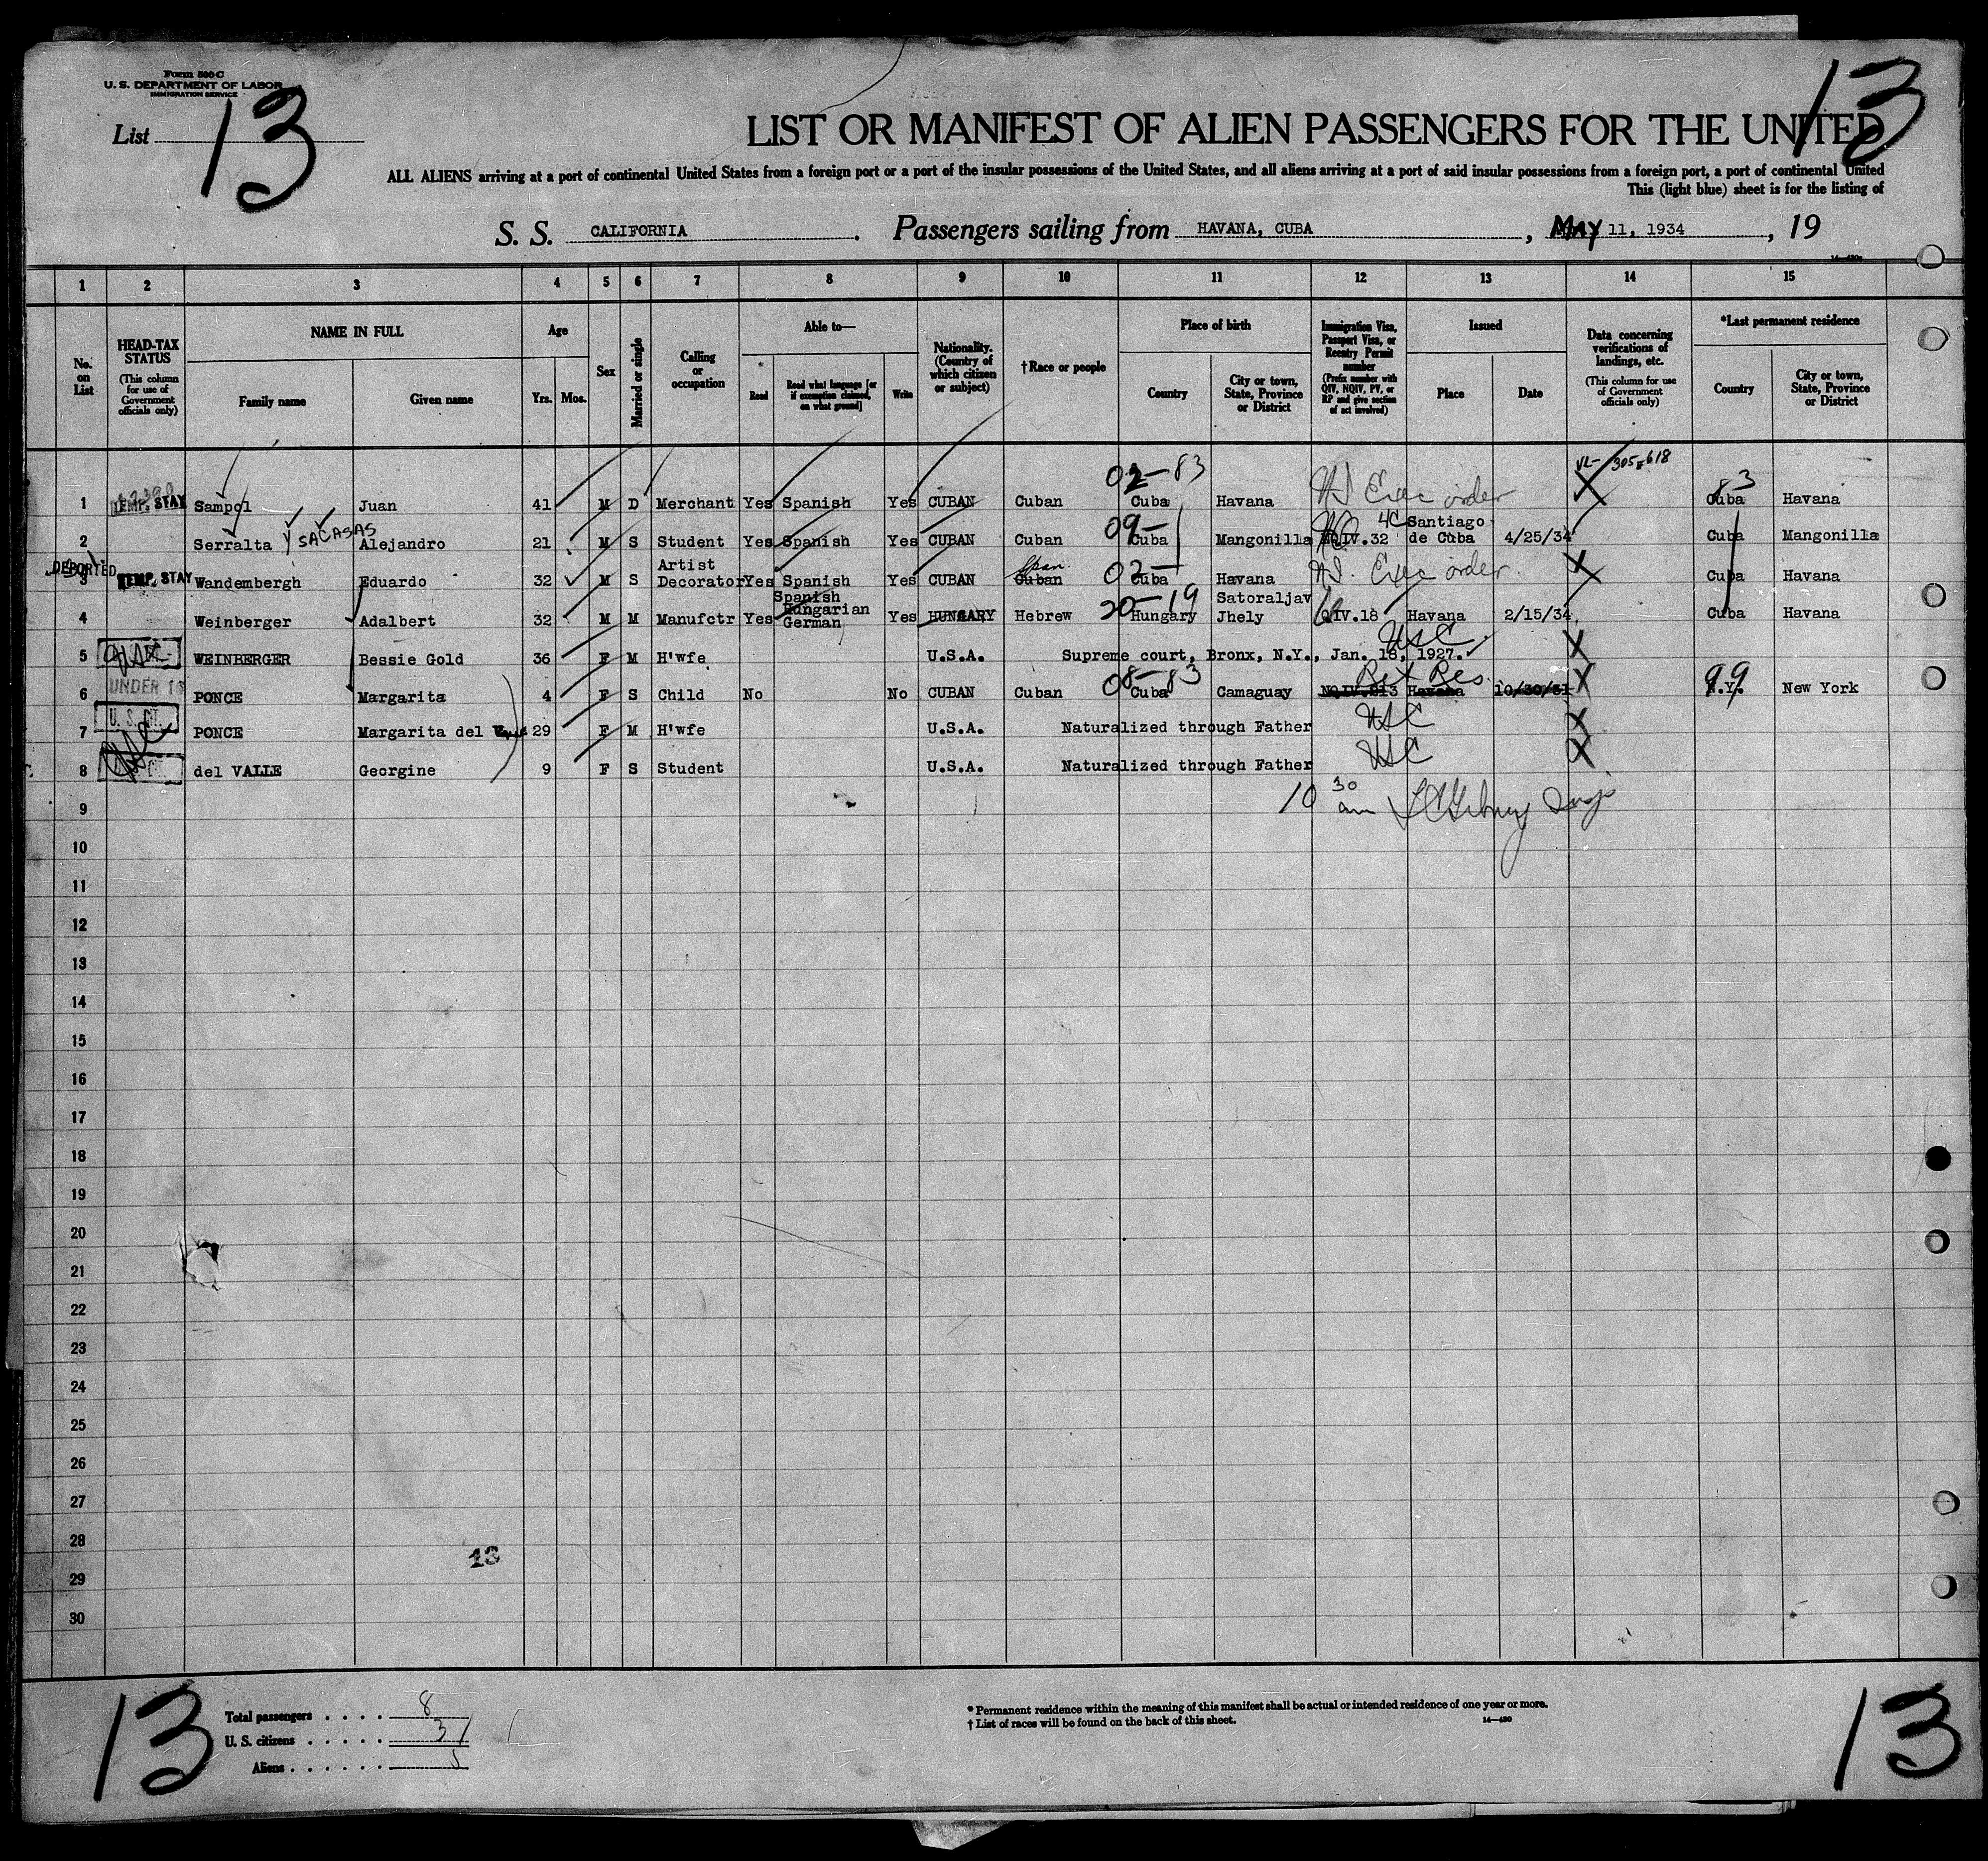 Form 500 C
U. S. DEPARTMENT OF LABOR
IMMIGRATION SERVICE
List 13
13
LIST OR MANIFEST OF ALIEN PASSENGERS FOR THE UNITED
ALL ALIENS arriving at a port of continental United States from a foreign port or a port of the insular possessions of the United States, and all aliens arriving at a port of said insular possessions from a foreign port, a port of continental United
This (light blue) sheet is for the listing of
S. S. CALIFORNIA. Passengers sailing from HAVANA, CUBA, MAY 11, 1934, 19
1 2 3 4 5 6 7 8 9 10 11 12 13 14 15
No. on List
HEAD-TAX STATUS (This column for use of Government officials only)
NAME IN FULL Family name Given name
Age Yrs. Mos.
Sex
Married or single
Calling or occupation
Able to— Read Read what language [or if exemption claimed, on what ground] Write
Nationality. (Country of which citizen or subject)
†Race or people
Place of birth Country City or town, State, Province or District
Immigration Visa, Passport Visa, or Reentry Permit number (Prefix number with QIV, NQIV, PV, or RP and give section of act involved)
Issued Place Date
Data concerning verifications of landings, etc. (This column for use of Government officials only)
*Last permanent residence Country City or town, State, Province or District
02-83 VL- 305-618
1 TEMP. STAY Sampol Juan 41 M D Merchant Yes Spanish Yes CUBAN Cuban Cuba Havana Exec order X Cuba 83 Havana
2 Serralta Y SACASAS Alejandro 21 M S Student Yes Spanish Yes CUBAN Cuban 09- Cuba Mangonilla NQIV.32 4C Santiago de Cuba 4/25/34 Cuba Mangonilla
DEPORTED
3 TEMP. STAY Wandembergh Eduardo 32 M S Artist Decorator Yes Spanish Yes CUBAN Cuban Span. 02- Cuba Havana Exec order. X Cuba Havana
4 Weinberger Adalbert 32 M M Manufctr Yes Spanish Hungarian German Yes HUNGARY Hebrew 20-19 Hungary Satoraljav Jhely QIV.18 Havana 2/15/34 Cuba Havana
5 WEINBERGER Bessie Gold 36 F M H'wfe U.S.A. Supreme court, Bronx, N.Y., Jan. 18, 1927. USC X
6 UNDER 16 PONCE Margarita 4 F S Child No No CUBAN Cuban 08-83 Cuba Camaguay NQIV.813 Havana 10/30/31 Ret Res. X N.Y. 99 New York
7 U. S. CIT. PONCE Margarita del 29 F M H'wfe U.S.A. Naturalized through Father USC X
8 USC del VALLE Georgine 9 F S Student U.S.A. Naturalized through Father USC X
9 10 30 am Insp
10
11
12
13
14
15
16
17
18
19
20
21
22
23
24
25
26
27
28
13
29
30
13
Total passengers . . . . 8
U. S. citizens . . . . . 3
Aliens . . . . . . 5
* Permanent residence within the meaning of this manifest shall be actual or intended residence of one year or more.
† List of races will be found on the back of this sheet.
14—430
13